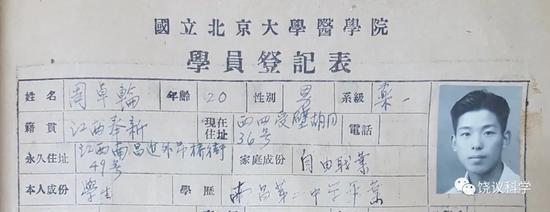 國立北京大學醫學院
學員登記表
姓名 周卓輪 年齡 20 性別 男 系級 藥一
籍貫 江西奉新 現在住址 西四受壁胡同36号 電話
永久住址 江西南昌進外吊橋街49号 家庭成份 自由職業
本人成份 学生 學歷 南昌第二中学畢業
饶议科学